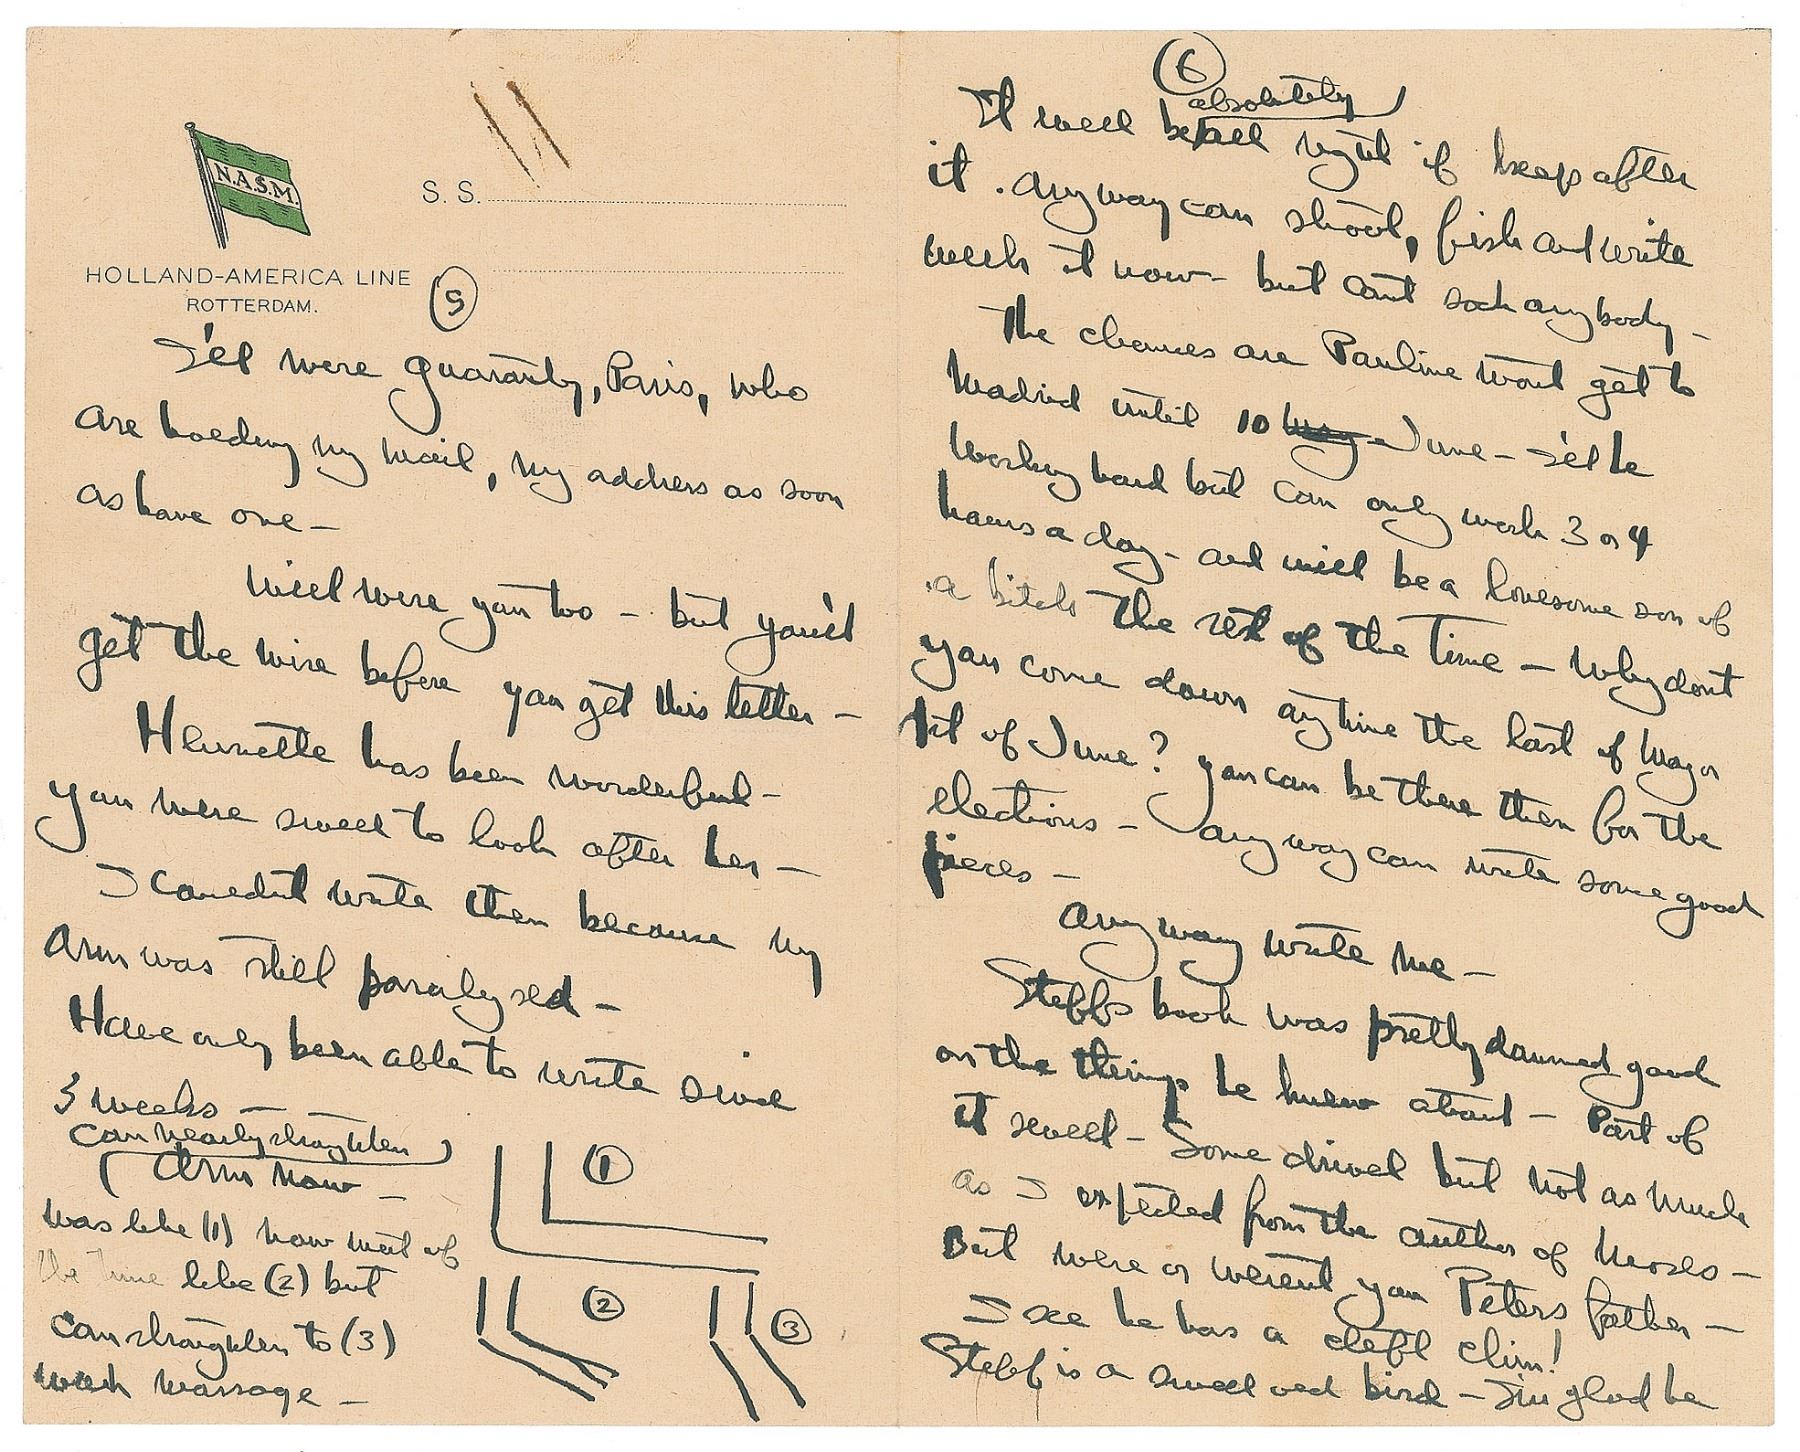 N.A.S.M.
S. S.
HOLLAND-AMERICA LINE
ROTTERDAM.
(5)
I'll wire Guaranty, Paris, who
are holding my mail, my address as soon
as have one —
Will wire you too — but you'll
get the wire before you get this letter —
Henriette has been wonderful —
you were sweet to look after her —
I couldnt write then because my
arm was still paralyzed —
Have only been able to write since
3 weeks —
can nearly straighten
( arm now —
was like (1) now most of
the time like (2) but
can straighten to (3)
with massage —
(1)
(2)
(3)
(6)
absolutely
It will be all right if keep after
it. Anyway can shoot, fish and write
with it now — but cant sock anybody —
The chances are Pauline wont get to
Madrid until 10 May June — I'll be
working hard but can only work 3 or 4
hours a day — and will be a lonesome son of
a bitch the rest of the time — Why dont
you come down anytime the last of May or
1st of June? You can be there then for the
elections — Anyway can write some good
pieces —
Anyway write me —
Steffs book was pretty damned good
on the things he knew about — Part of
it swell — Some drivel but not as much
as I expected from the author of Moses —
But were or werent you Peters father —
I see he has a cleft chin!
Steff is a sweet old bird — I'm glad he